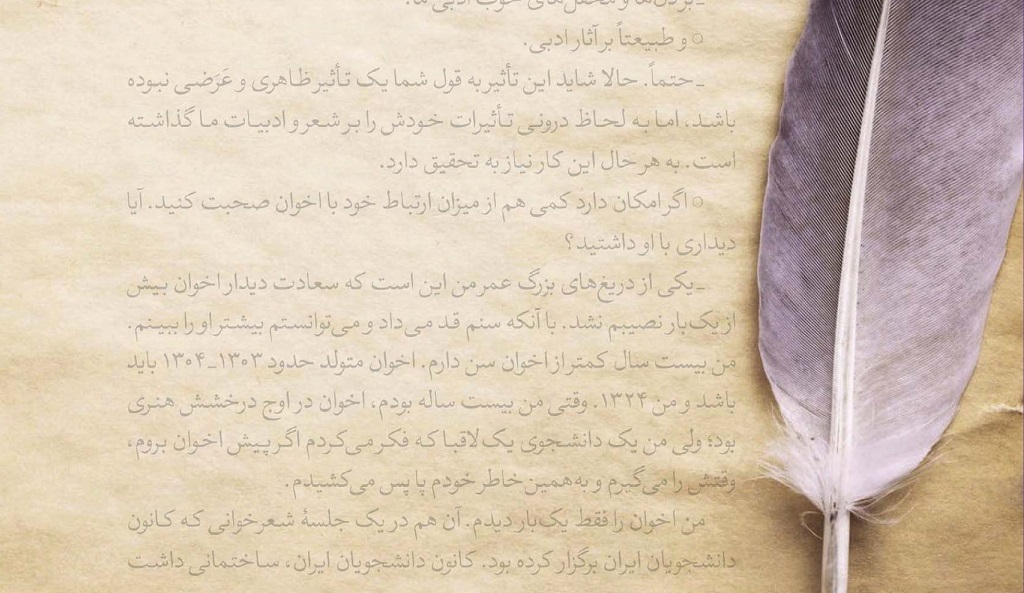 ـ بردل‌ها و محفل‌های خوب ادبی ما.
○ و طبیعتاً بر آثار ادبی.
ـ حتماً. حالا شاید این تأثیر به قول شما یک تأثیر ظاهری و عَرَضی نبوده
باشد، اما به لحاظ درونی تأثیرات خودش را بر شعر و ادبیات ما گذاشته
است. به هر حال این کار نیاز به تحقیق دارد.
○ اگر امکان دارد کمی هم از میزان ارتباط خود با اخوان صحبت کنید. آیا
دیداری با او داشتید؟
ـ یکی از دریغ‌های بزرگ عمر من این است که سعادت دیدار اخوان بیش
از یک‌بار نصیبم نشد. با آنکه سنم قد می‌داد و می‌توانستم بیشتر او را ببینم.
من بیست سال کمتر از اخوان سن دارم. اخوان متولد حدود ۱۳۰۳ـ۱۳۰۴ باید
باشد و من ۱۳۲۴. وقتی من بیست ساله بودم، اخوان در اوج درخشش هنری
بود؛ ولی من یک دانشجوی یک‌لاقبا که فکر می‌کردم اگر پیش اخوان بروم،
وقتش را می‌گیرم و به‌همین‌خاطر خودم پا پس می‌کشیدم.
من اخوان را فقط یک‌بار دیدم. آن هم در یک جلسهٔ شعرخوانی که کانون
دانشجویان ایران برگزار کرده بود. کانون دانشجویان ایران، ساختمانی داشت